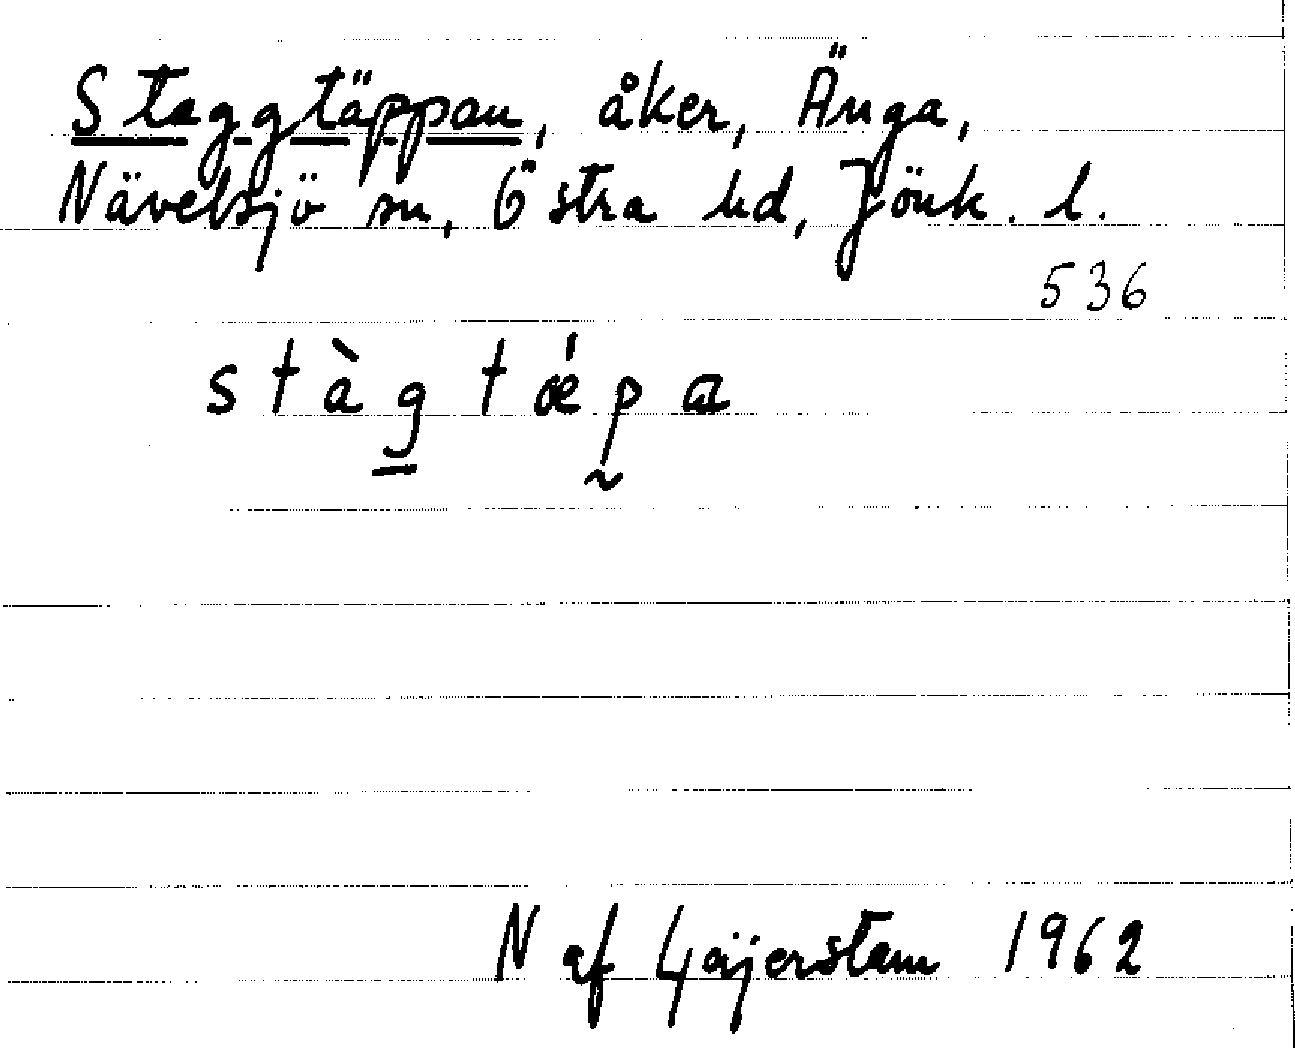 Staggtäppan, åker, Änga,
Nävelsjö sn, Östra hd, Jönk. l.
536
stàg̲tǽp̰ɑ
N af Gäijerstam 1962